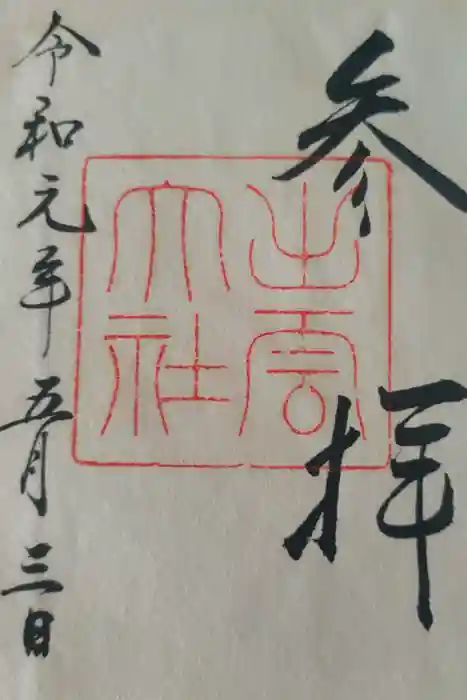 参拝
出雲
大社
令和元年五月三日